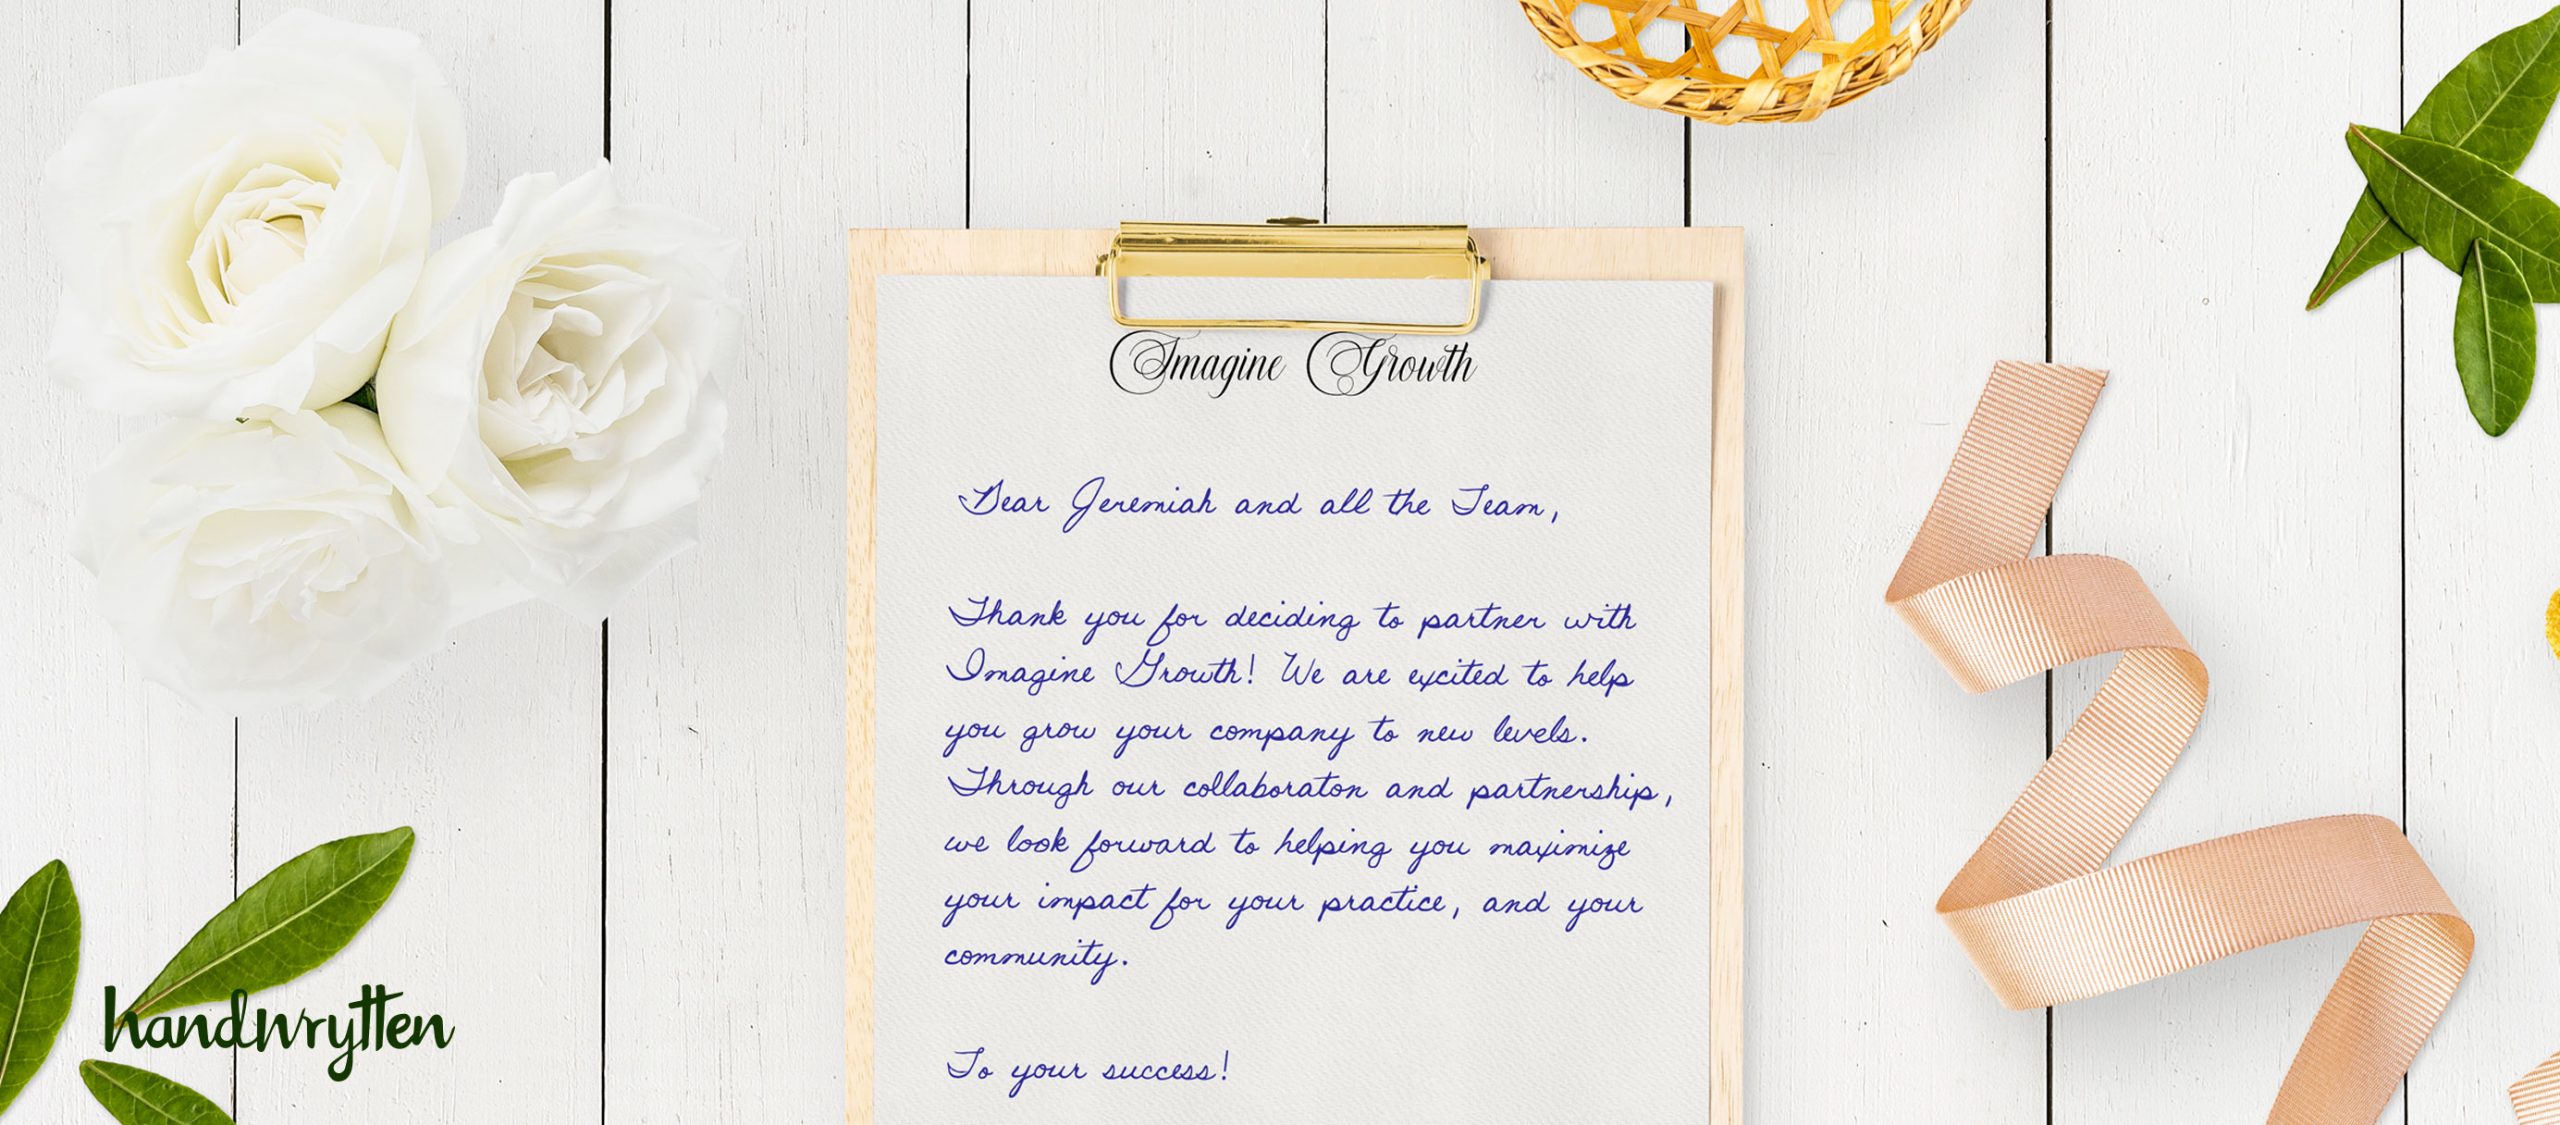 Imagine Growth
Dear Jeremiah and all the Team,
Thank you for deciding to partner with
Imagine Growth! We are excited to help
you grow your company to new levels.
Through our collaboraton and partnership,
we look forward to helping you maximize
your impact for your practice, and your
community.
To your success!
handwrytten